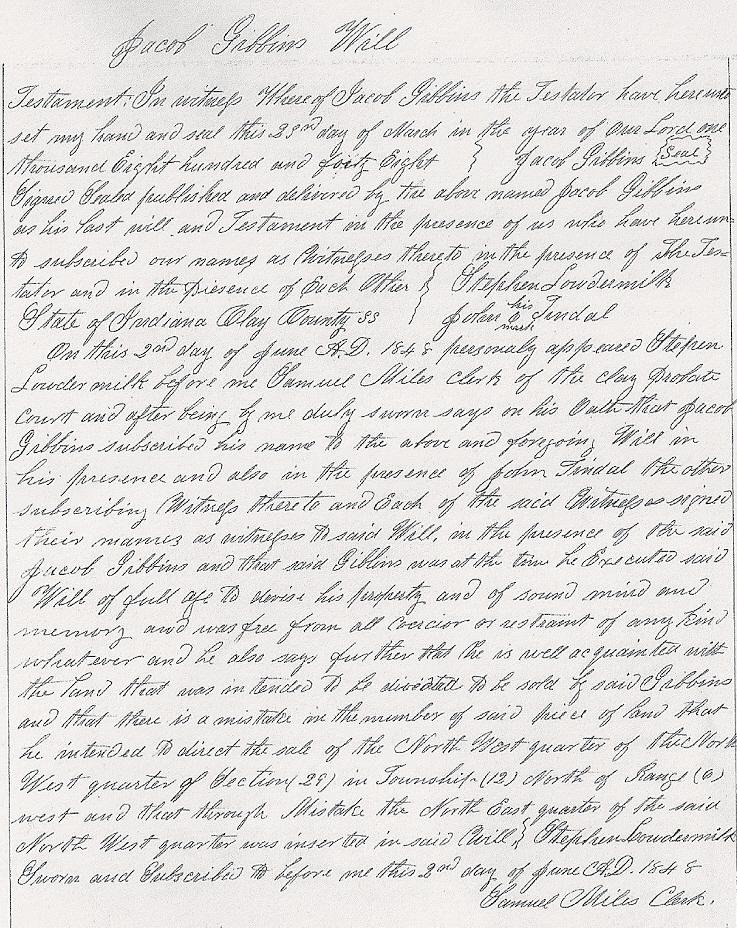 Jacob Gibbins Will
Testament. In witness Whereof Jacob Gibbins the Testator have hereunto
set my hand and seal this 23rd day of March in the year of Our Lord one
thousand Eight hundred and forty Eight } Jacob Gibbins {Seal}
Signed Seald published and delivered by the above named Jacob Gibbins
as his last will and Testament in the presence of us who have hereun-
to subscribed our names as Witnesses thereto in the presence of The Tes=
tator and in the presence of Each Other } Stephen Lowdermilk
State of Indiana Clay County SS } John his mark Tindal
On this 2nd day of June A.D. 1848 personaly appeared Stephen
Lowdermilk before me Samuel Miles Clerk of the Clay Probate
Court and after being by me duly sworn says on his Oath that Jacob
Gibbins subscribed his name to the above and foregoing Will in
his presence and also in the presence of John Tindal the other
subscribing Witness thereto and Each of the said Witnesses signed
their names as witnesses to said Will, in the presence of the said
Jacob Gibbins and that said Gibbins was at the time he Executed said
Will of full age to devise his property and of sound mind and
memory and was free from all or restraint of any kind
whatever and he also says further that he is well acquainted with
the land that was intended to be to be sold by said Gibbins
and that there is a mistake in the number of said piece of land that
he intended to direct the sale of the North West quarter of the North
West quarter of Section (29) in Township (12) North of Range (6)
west and that through Mistake the North East quarter of the said
North West quarter was inserted in said Will } Stephen Lowdermilk
Sworn and Subscribed to before me this 2nd day of June A.D. 1848
Samuel Miles Clerk.